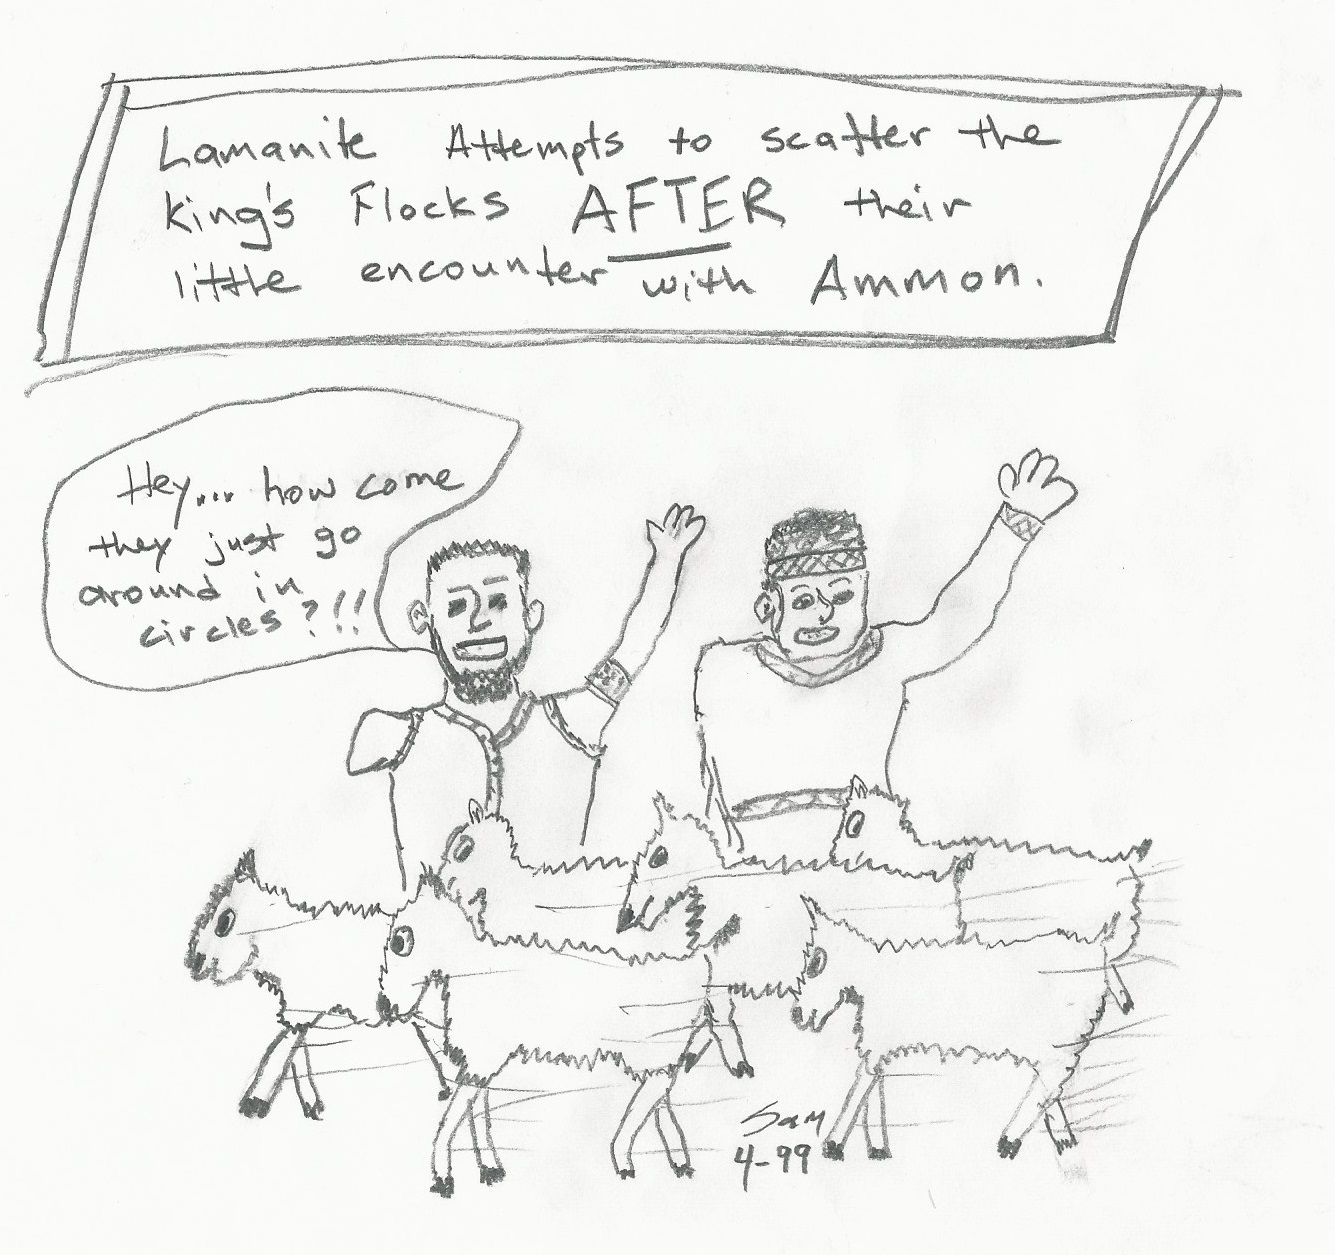 Lamanite Attempts to scatter the
King's Flocks AFTER their
little encounter with Ammon.
Hey... how come
they just go
around in
circles?!!
Sam
4-99